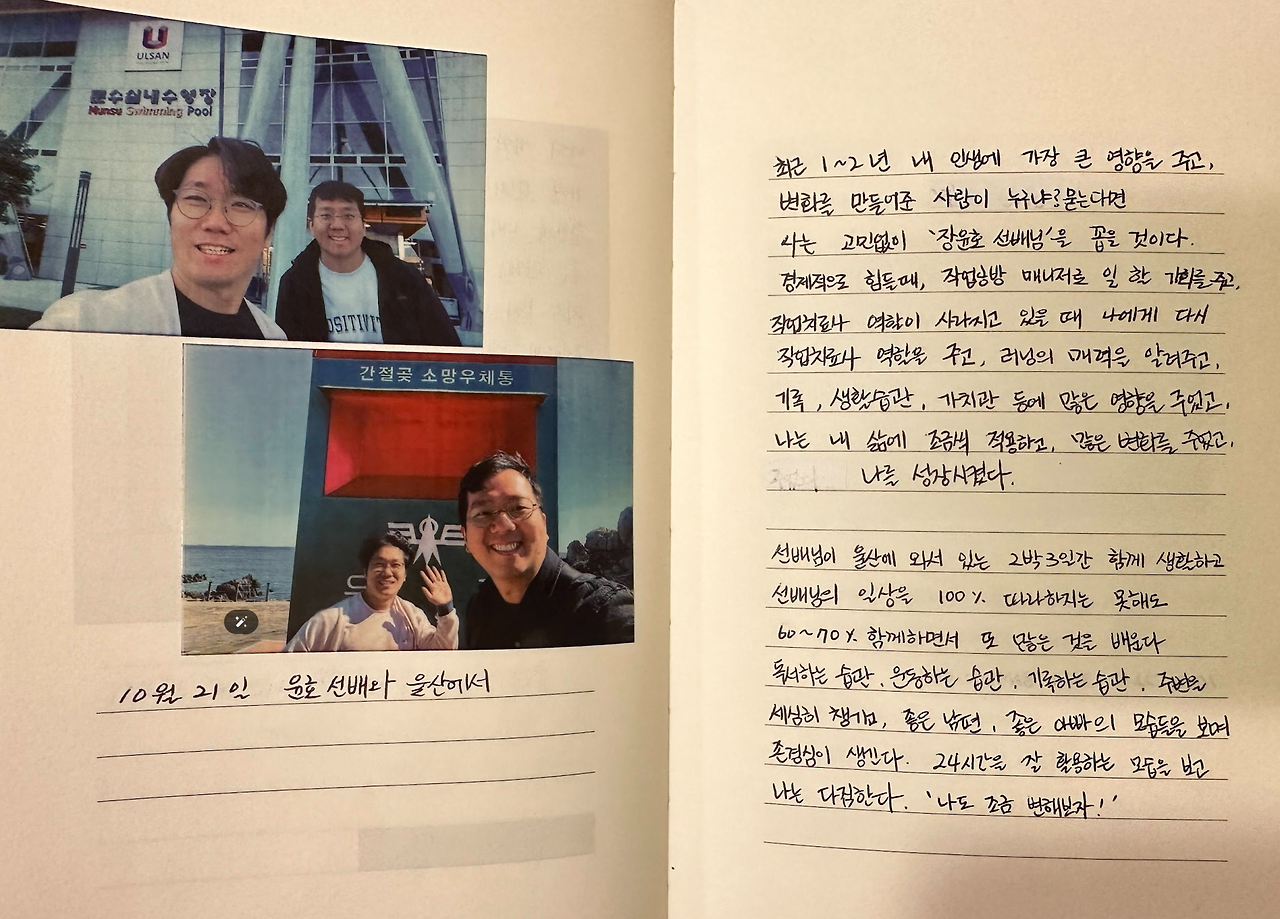 ULSAN
문수실내수영장
Munsu Swimming Pool
OSITIVIT
간절곶 소망우체통
10월 21일 윤호 선배와 울산에서
최근 1~2년 내 인생에 가장 큰 영향을 주고,
변화를 만들어준 사람이 누구냐? 묻는다면
나는 고민없이 '장윤호 선배님'을 꼽을 것이다.
경제적으로 힘들때, 작업공방 매니저로 일 할 기회를 주고,
작업치료사 역할이 사라지고 있을 때 나에게 다시
작업치료사 역할을 주고, 러닝의 매력을 알려주고,
기록, 생활습관, 가치관 등에 많은 영향을 주었고,
나는 내 삶에 조금씩 적용하고, 많은 변화를 주었고,
나를 성장시켰다.
선배님이 울산에 와서 있는 2박3일간 함께 생활하고
선배님의 일상을 100% 따라하지는 못해도
60~70% 함께하면서 또 많은 것을 배운다
독서하는 습관, 운동하는 습관, 기록하는 습관, 주변을
세심히 챙기고, 좋은 남편, 좋은 아빠의 모습들을 보며
존경심이 생긴다. 24시간을 잘 활용하는 모습을 보고
나는 다짐한다. '나도 조금 변해보자!'